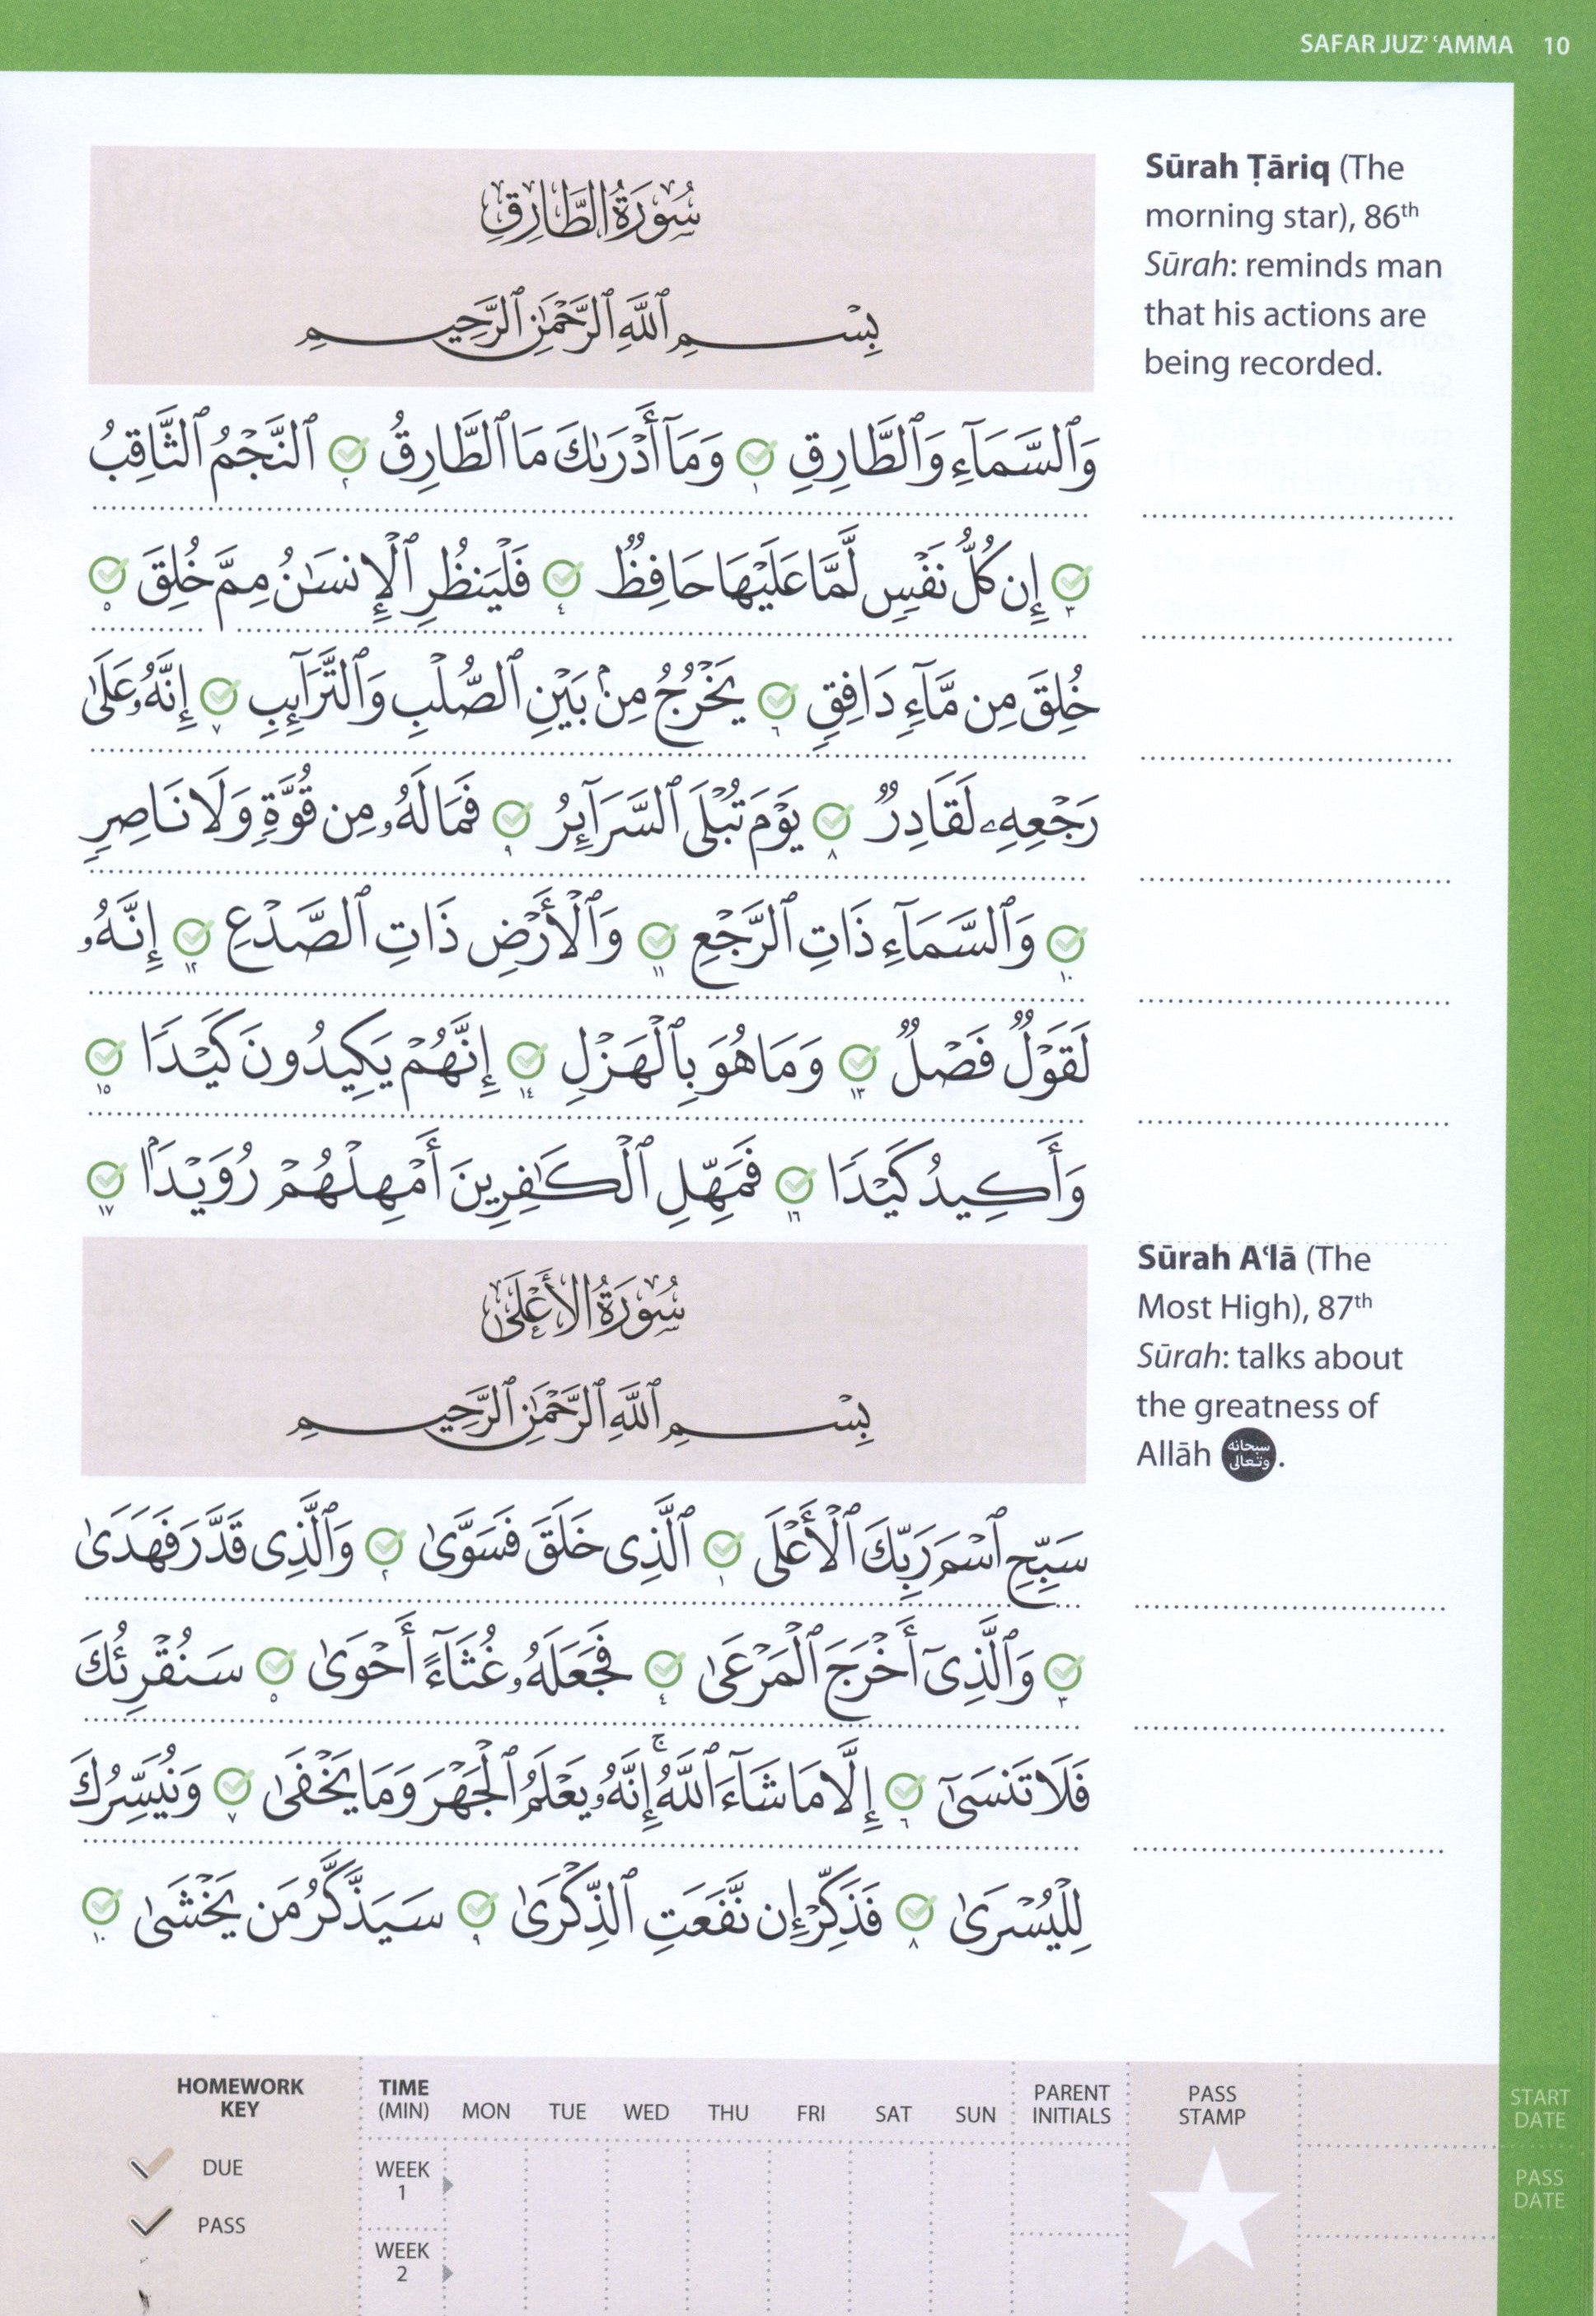 SAFAR JUZ’ ‘AMMA 10
سُورَةُ الطَّارِقِ
بِسْمِ ٱللَّهِ ٱلرَّحْمَٰنِ ٱلرَّحِيمِ
Sūrah Ṭāriq (The
morning star), 86th
Sūrah: reminds man
that his actions are
being recorded.
وَٱلسَّمَآءِ وَٱلطَّارِقِ ١ وَمَآ أَدْرَىٰكَ مَا ٱلطَّارِقُ ٢ ٱلنَّجْمُ ٱلثَّاقِبُ
٣ إِن كُلُّ نَفْسٍ لَّمَّا عَلَيْهَا حَافِظٌ ٤ فَلْيَنظُرِ ٱلْإِنسَٰنُ مِمَّ خُلِقَ ٥
خُلِقَ مِن مَّآءٍ دَافِقٍ ٦ يَخْرُجُ مِنۢ بَيْنِ ٱلصُّلْبِ وَٱلتَّرَآئِبِ ٧ إِنَّهُۥ عَلَىٰ
رَجْعِهِۦ لَقَادِرٌ ٨ يَوْمَ تُبْلَى ٱلسَّرَآئِرُ ٩ فَمَا لَهُۥ مِن قُوَّةٍ وَلَا نَاصِرٍ
١٠ وَٱلسَّمَآءِ ذَاتِ ٱلرَّجْعِ ١١ وَٱلْأَرْضِ ذَاتِ ٱلصَّدْعِ ١٢ إِنَّهُۥ
لَقَوْلٌ فَصْلٌ ١٣ وَمَا هُوَ بِٱلْهَزْلِ ١٤ إِنَّهُمْ يَكِيدُونَ كَيْدًا ١٥
وَأَكِيدُ كَيْدًا ١٦ فَمَهِّلِ ٱلْكَٰفِرِينَ أَمْهِلْهُمْ رُوَيْدًۢا ١٧
سُورَةُ الأَعْلَىٰ
بِسْمِ ٱللَّهِ ٱلرَّحْمَٰنِ ٱلرَّحِيمِ
Sūrah A‘lā (The
Most High), 87th
Sūrah: talks about
the greatness of
Allāh سبحانه وتعالى.
سَبِّحِ ٱسْمَ رَبِّكَ ٱلْأَعْلَى ١ ٱلَّذِى خَلَقَ فَسَوَّىٰ ٢ وَٱلَّذِى قَدَّرَ فَهَدَىٰ
٣ وَٱلَّذِىٓ أَخْرَجَ ٱلْمَرْعَىٰ ٤ فَجَعَلَهُۥ غُثَآءً أَحْوَىٰ ٥ سَنُقْرِئُكَ
فَلَا تَنسَىٰٓ ٦ إِلَّا مَا شَآءَ ٱللَّهُ ۚ إِنَّهُۥ يَعْلَمُ ٱلْجَهْرَ وَمَا يَخْفَىٰ ٧ وَنُيَسِّرُكَ
لِلْيُسْرَىٰ ٨ فَذَكِّرْ إِن نَّفَعَتِ ٱلذِّكْرَىٰ ٩ سَيَذَّكَّرُ مَن يَخْشَىٰ ١٠
HOMEWORK
KEY
DUE
PASS
TIME
(MIN) MON TUE WED THU FRI SAT SUN
WEEK
1
WEEK
2
PARENT
INITIALS
PASS
STAMP
START
DATE
PASS
DATE